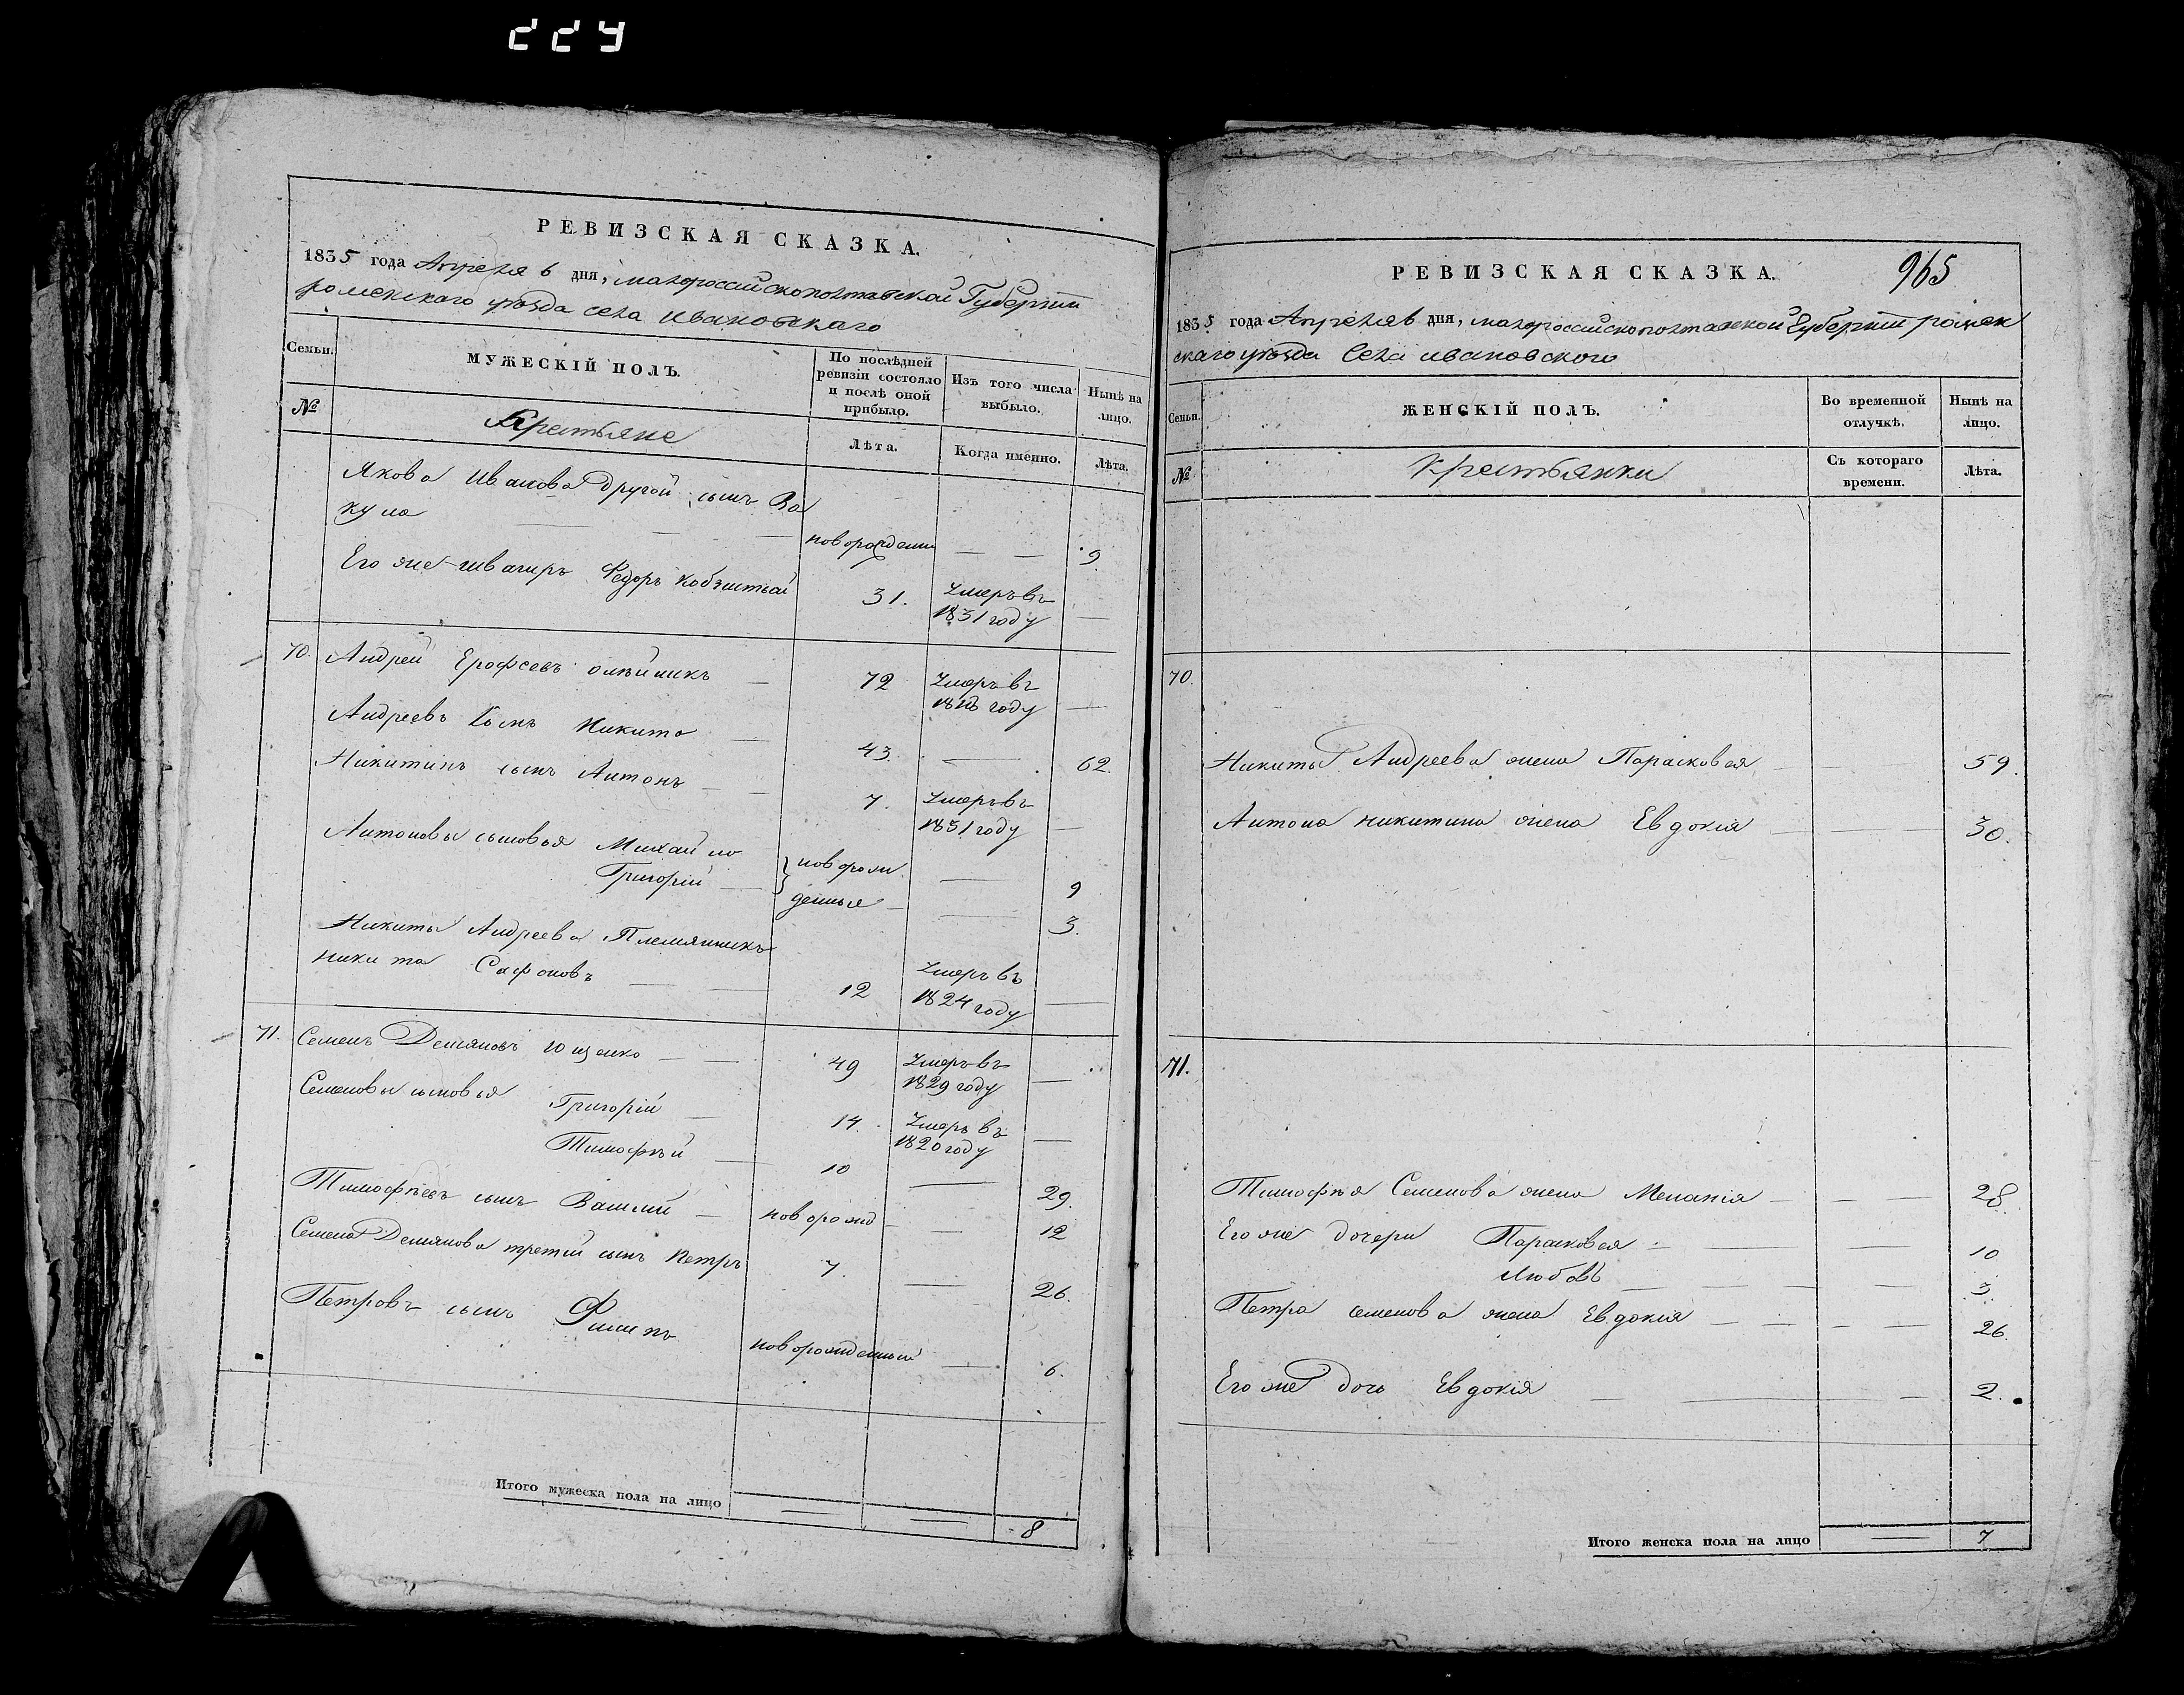 224
РЕВИЗСКАЯ СКАЗКА.
1835 года Апреля 6 дня, малороссийскополтавской Губернии
роменского уезда села ивановского
Семьи.
МУЖЕСКІЙ ПОЛЪ.
По послѣдней ревизіи состояло и послѣ оной прибыло.
Изъ того числа выбыло.
Нынѣ на лицо.
№
Крестьяне
Лѣта.
Когда именно.
Лѣта.
Якова Иванова другой сынъ Ва
кула новорожденн — — 9
Его же швагиръ Федоръ 31. Умеръ въ
1831 году —
70. Андрей Ерофеевъ олейникъ — 72 Умеръ въ
году —
Андреевъ Сынъ Никита — 43. — 62.
Никитинъ сынъ Антонъ — — 7. Умеръ въ
1831 году —
Антоновы сыновья Михайло новорож — 9
Григорій — денные — — 3.
Никиты Андреева Племянникъ
никита Сафоновъ — — 12 Умеръ въ
1824 году —
71. Семенъ Демяновъ Ющенко — — 49 Умеръ въ
1829 году —
Семеновы сыновья Григорій — 14. Умеръ въ
1820 году —
Тимофѣй — 10 — 29.
Тимофѣевъ сынъ Василий — новорожд — — 12
Семена Демянова третий сынъ Петръ 7. — 26.
Петровъ сынъ Филипъ новорожденный — 6.
Итого мужеска пола на лицо — — 8
965
РЕВИЗСКАЯ СКАЗКА.
1835 года Апреля 6 дня, малороссийскополтавской Губернии ромен
ского уезда Села ивановского
Семьи.
ЖЕНСКІЙ ПОЛЪ.
Во временной отлучкѣ.
Нынѣ на лицо.
№
Крестьянки
Съ котораго времени.
Лѣта.
70.
Никиты Андреева жена Парасковея — — 59.
Антона никитина жена Евдокія — — 30.
71.
Тимофѣя Семенова жена Меланія — — — 28.
Его же дочери Парасковея — — — 10
Любовъ — — — 3.
Петра семенова жена Евдокія — — — — 26.
Его же дочь Евдокія — — — 2.
Итого женска пола на лицо — 7